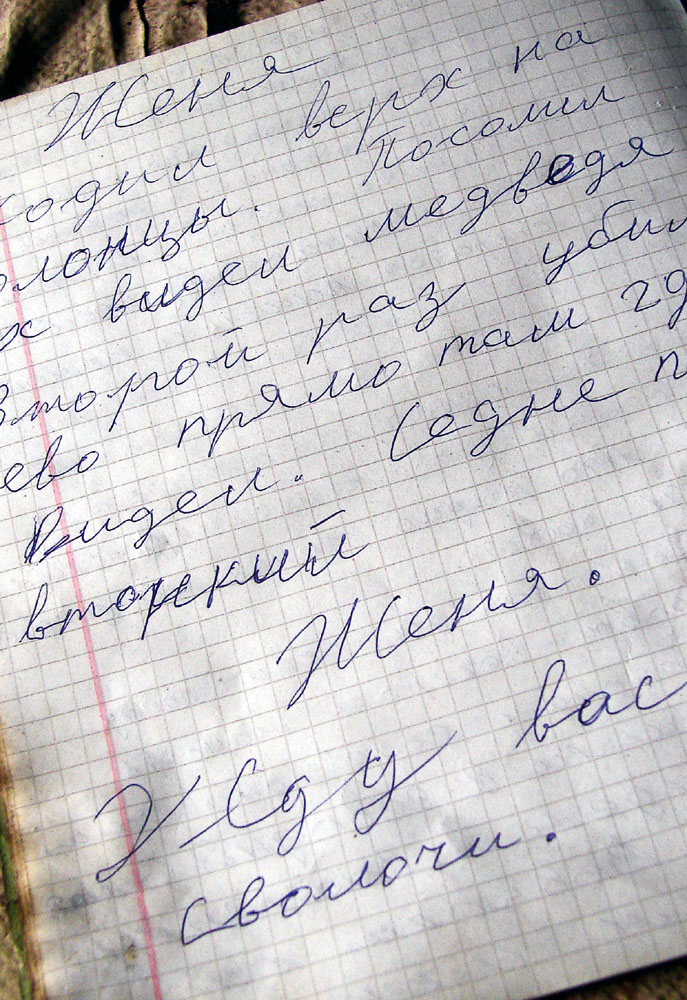 Женя
ходил верх на
олонцы. Посомил
х видел медведя
Второй раз убил
ево прямо там гд
видел. Седне п
Женя.
Жду вас
сволочи.